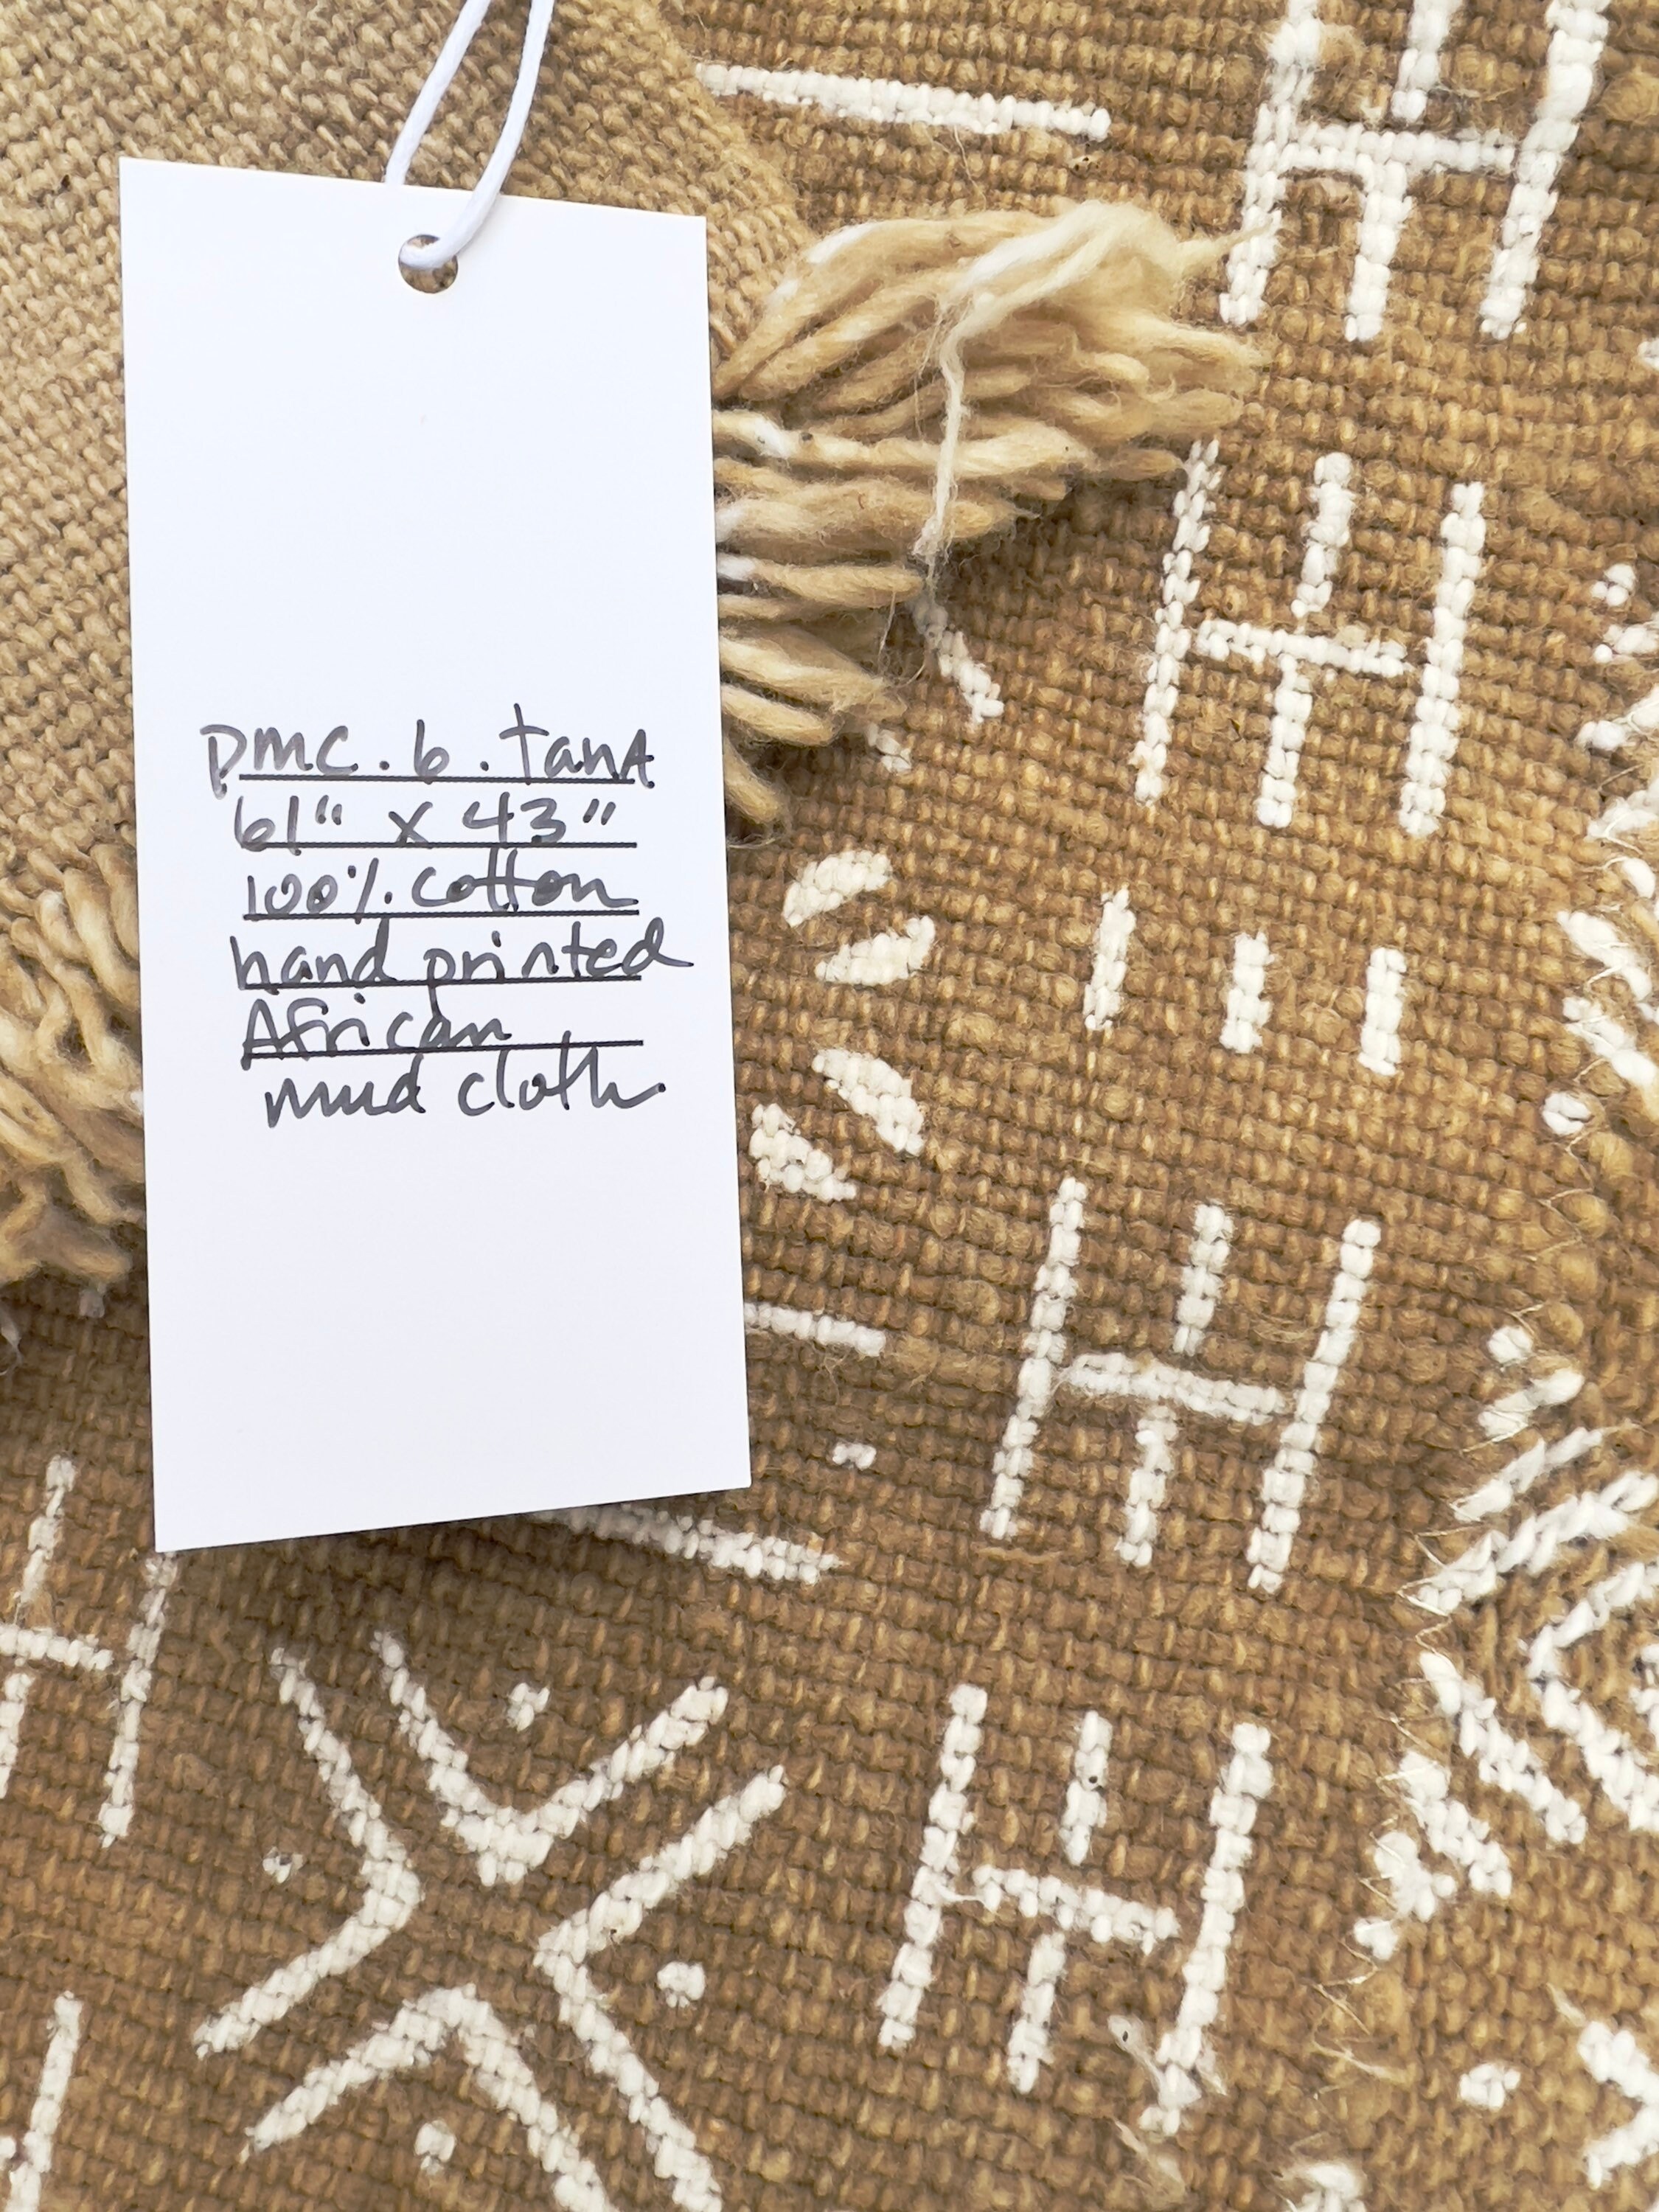 PMC.6.tanA
61" x 43"
100% cotton
hand printed
African
mud cloth